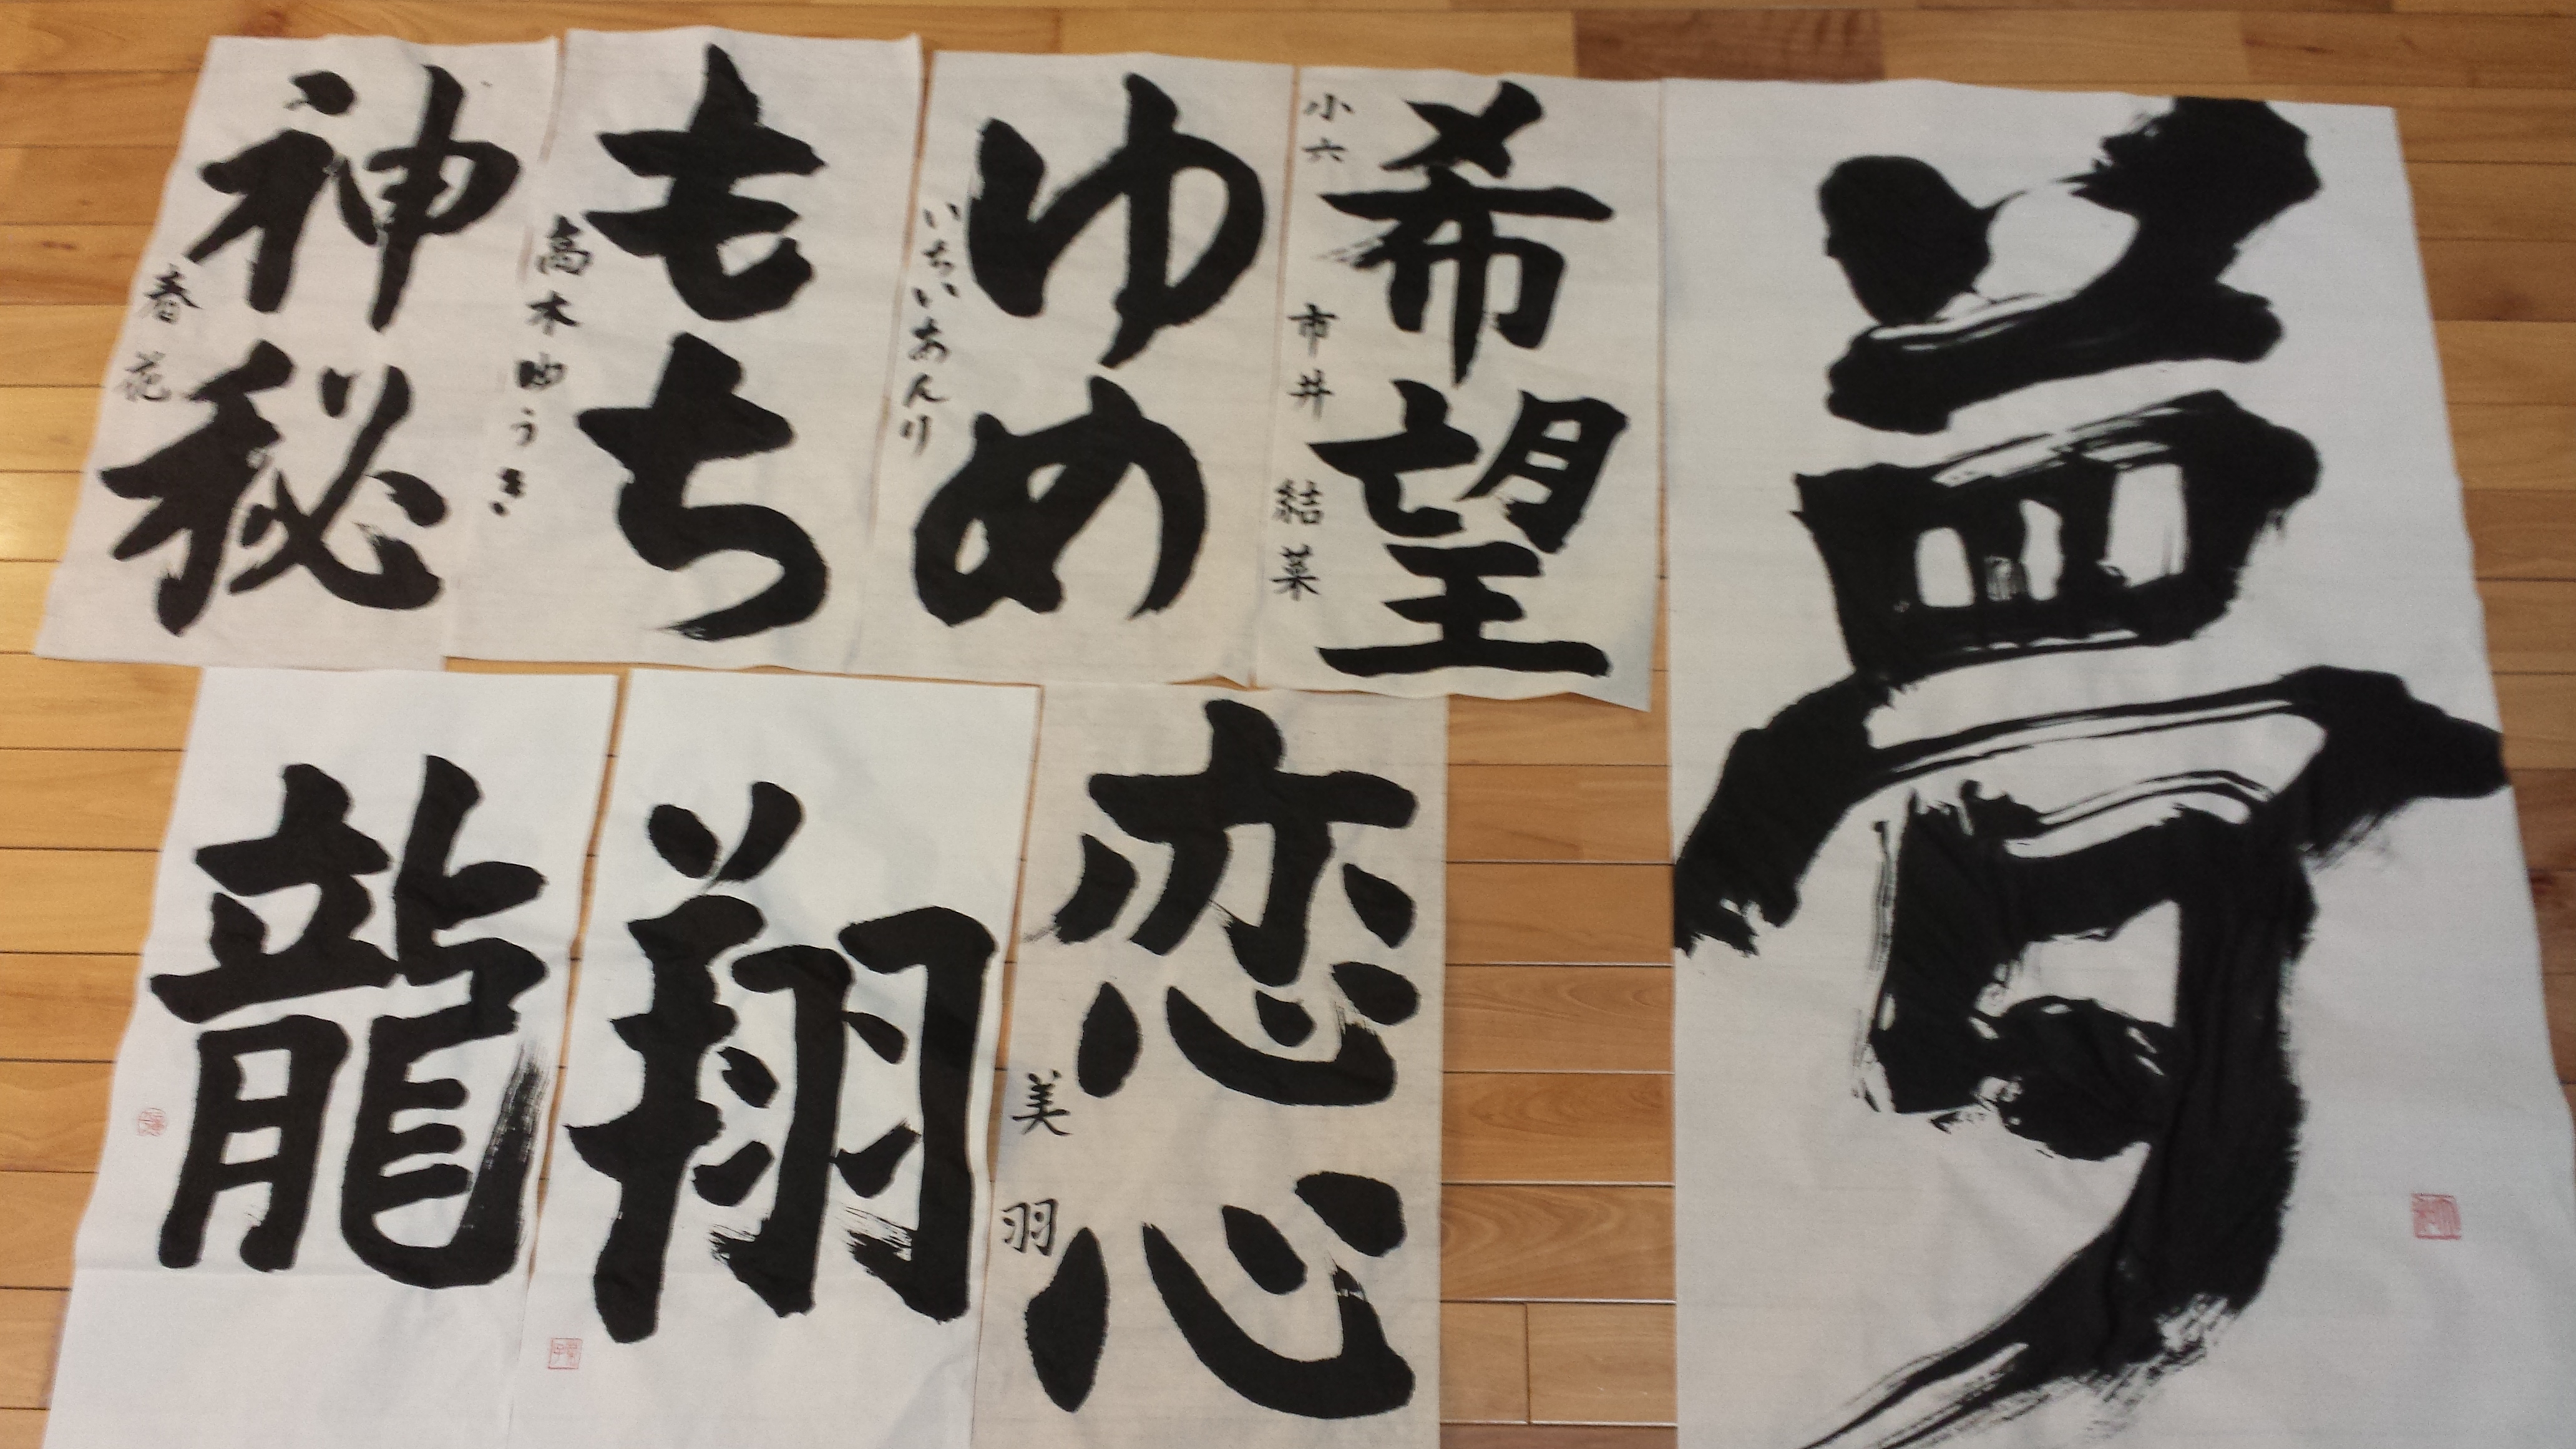 神秘
春花
もち
高木ゆうき
ゆめ
いちいあんり
希望
小六 市井 結菜
夢
龍
翔
恋心
美羽